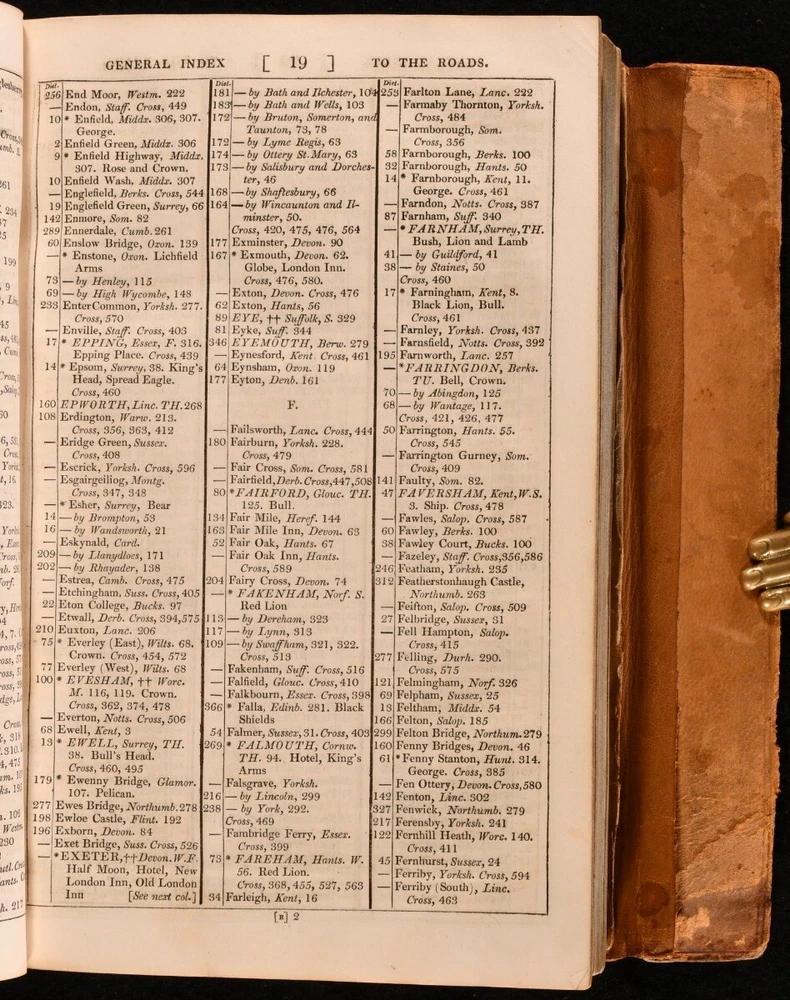 GENERAL INDEX [ 19 ] TO THE ROADS.
Dist.
256 End Moor, Westm. 222
— Endon, Staff. Cross, 449
10 * Enfield, Middx. 306, 307.
George.
2 Enfield Green, Middx. 306
9 * Enfield Highway, Middx.
307. Rose and Crown.
10 Enfield Wash, Middx. 307
— Englefield, Berks. Cross, 544
19 Englefield Green, Surrey, 66
142 Enmore, Som. 82
289 Ennerdale, Cumb. 261
60 Enslow Bridge, Oxon. 139
— * Enstone, Oxon. Lichfield
Arms
73 — by Henley, 115
69 — by High Wycombe, 148
233 Enter Common, Yorksh. 277.
Cross, 570
— Enville, Staff. Cross, 403
17 * EPPING, Essex, F. 316.
Epping Place. Cross, 439
14 * Epsom, Surrey, 38. King's
Head, Spread Eagle.
Cross, 460
160 EPWORTH, Linc. TH. 268
108 Erdington, Warw. 213.
Cross, 356, 363, 412
— Eridge Green, Sussex.
Cross, 408
— Escrick, Yorksh. Cross, 596
— Esgairgeiliog, Montg.
Cross, 347, 348
— * Esher, Surrey, Bear
14 — by Brompton, 53
16 — by Wandsworth, 21
— Eskynald, Card.
209 — by Llanydloes, 171
202 — by Rhayader, 138
— Estrea, Camb. Cross, 475
— Etchingham, Suss. Cross, 405
22 Eton College, Bucks. 97
— Etwall, Derb. Cross, 394, 575
210 Euxton, Lanc. 206
75 * Everley (East), Wilts. 68.
Crown. Cross, 454, 572
77 Everley (West), Wilts. 68
100 * EVESHAM, †† Worc.
M. 116, 119. Crown.
Cross, 362, 374, 478
— Everton, Notts. Cross, 506
68 Ewell, Kent, 3
13 * EWELL, Surrey, TH.
38. Bull's Head.
Cross, 460, 495
179 * Ewenny Bridge, Glamor.
107. Pelican.
277 Ewes Bridge, Northumb. 278
198 Ewloe Castle, Flint. 192
196 Exborn, Devon. 84
— Exet Bridge, Suss. Cross, 526
— *EXETER, †† Devon. W.F.
Half Moon, Hotel, New
London Inn, Old London
Inn [See next col.]
Dist.
181 — by Bath and Ilchester, 104
183 — by Bath and Wells, 103
172 — by Bruton, Somerton, and
Taunton, 73, 78
172 — by Lyme Regis, 63
174 — by Ottery St. Mary, 63
173 — by Salisbury and Dorches-
ter, 46
168 — by Shaftesbury, 66
164 — by Wincaunton and Il-
minster, 50.
Cross, 420, 475, 476, 564
177 Exminster, Devon. 90
167 * Exmouth, Devon. 62.
Globe, London Inn.
Cross, 476, 580.
— Exton, Devon. Cross, 476
62 Exton, Hants, 56
89 EYE, †† Suffolk, S. 329
81 Eyke, Suff. 344
346 EYEMOUTH, Berw. 279
— Eynesford, Kent. Cross, 461
64 Eynsham, Oxon. 119
177 Eyton, Denb. 161
F.
— Failsworth, Lanc. Cross, 444
180 Fairburn, Yorksh. 228.
Cross, 479
— Fair Cross, Som. Cross, 581
— Fairfield, Derb. Cross, 447, 508
80 *FAIRFORD, Glouc. TH.
125. Bull.
134 Fair Mile, Heref. 144
163 Fair Mile Inn, Devon. 63
52 Fair Oak, Hants. 67
— Fair Oak Inn, Hants.
Cross, 589
204 Fairy Cross, Devon. 74
— * FAKENHAM, Norf. S.
Red Lion
113 — by Dereham, 323
117 — by Lynn, 313
109 — by Swaffham, 321, 322.
Cross, 513
— Fakenham, Suff. Cross, 516
— Falfield, Glouc. Cross, 410
— Falkbourn, Essex. Cross, 398
366 * Falla, Edinb. 281. Black
Shields
54 Falmer, Sussex, 31. Cross, 403
269 * FALMOUTH, Cornw.
TH. 94. Hotel, King's
Arms
— Falsgrave, Yorksh.
216 — by Lincoln, 299
238 — by York, 292.
Cross, 469
— Fambridge Ferry, Essex.
Cross, 399
73 * FAREHAM, Hants. W.
56. Red Lion.
Cross, 368, 455, 527, 563
34 Farleigh, Kent, 16
Dist.
253 Farlton Lane, Lanc. 222
— Farmaby Thornton, Yorksh.
Cross, 484
— Farmborough, Som.
Cross, 356
58 Farnborough, Berks. 100
32 Farnborough, Hants. 50
14 * Farnborough, Kent, 11.
George. Cross, 461
— Farndon, Notts. Cross, 387
87 Farnham, Suff. 340
— * FARNHAM, Surrey, TH.
Bush, Lion and Lamb
41 — by Guildford, 41
38 — by Staines, 50
Cross, 460
17 * Farningham, Kent, 8.
Black Lion, Bull.
Cross, 461
— Farnley, Yorksh. Cross, 437
— Farnsfield, Notts. Cross, 392
195 Farnworth, Lanc. 257
— *FARRINGDON, Berks.
TU. Bell, Crown.
70 — by Abingdon, 125
68 — by Wantage, 117.
Cross, 421, 426, 477
50 Farrington, Hants. 55.
Cross, 545
— Farrington Gurney, Som.
Cross, 409
141 Faulty, Som. 82.
47 FAVERSHAM, Kent, W.S.
3. Ship. Cross, 478
— Fawles, Salop. Cross, 587
60 Fawley, Berks. 100
38 Fawley Court, Bucks. 100
— Fazeley, Staff. Cross, 356, 586
246 Featham, Yorksh. 235
312 Featherstonhaugh Castle,
Northumb. 263
— Feifton, Salop. Cross, 509
27 Felbridge, Sussex, 31
— Fell Hampton, Salop.
Cross, 415
277 Felling, Durh. 290.
Cross, 575
121 Felmingham, Norf. 326
69 Felpham, Sussex, 25
13 Feltham, Middx. 54
166 Felton, Salop. 185
299 Felton Bridge, Northum. 279
160 Fenny Bridges, Devon. 46
61 * Fenny Stanton, Hunt. 314.
George. Cross, 385
— Fen Ottery, Devon. Cross, 580
142 Fenton, Linc. 302
327 Fenwick, Northumb. 279
217 Ferensby, Yorksh. 241
122 Fernhill Heath, Worc. 140.
Cross, 411
45 Fernhurst, Sussex, 24
— Ferriby, Yorksh. Cross, 594
— Ferriby (South), Linc.
Cross, 463
[B] 2